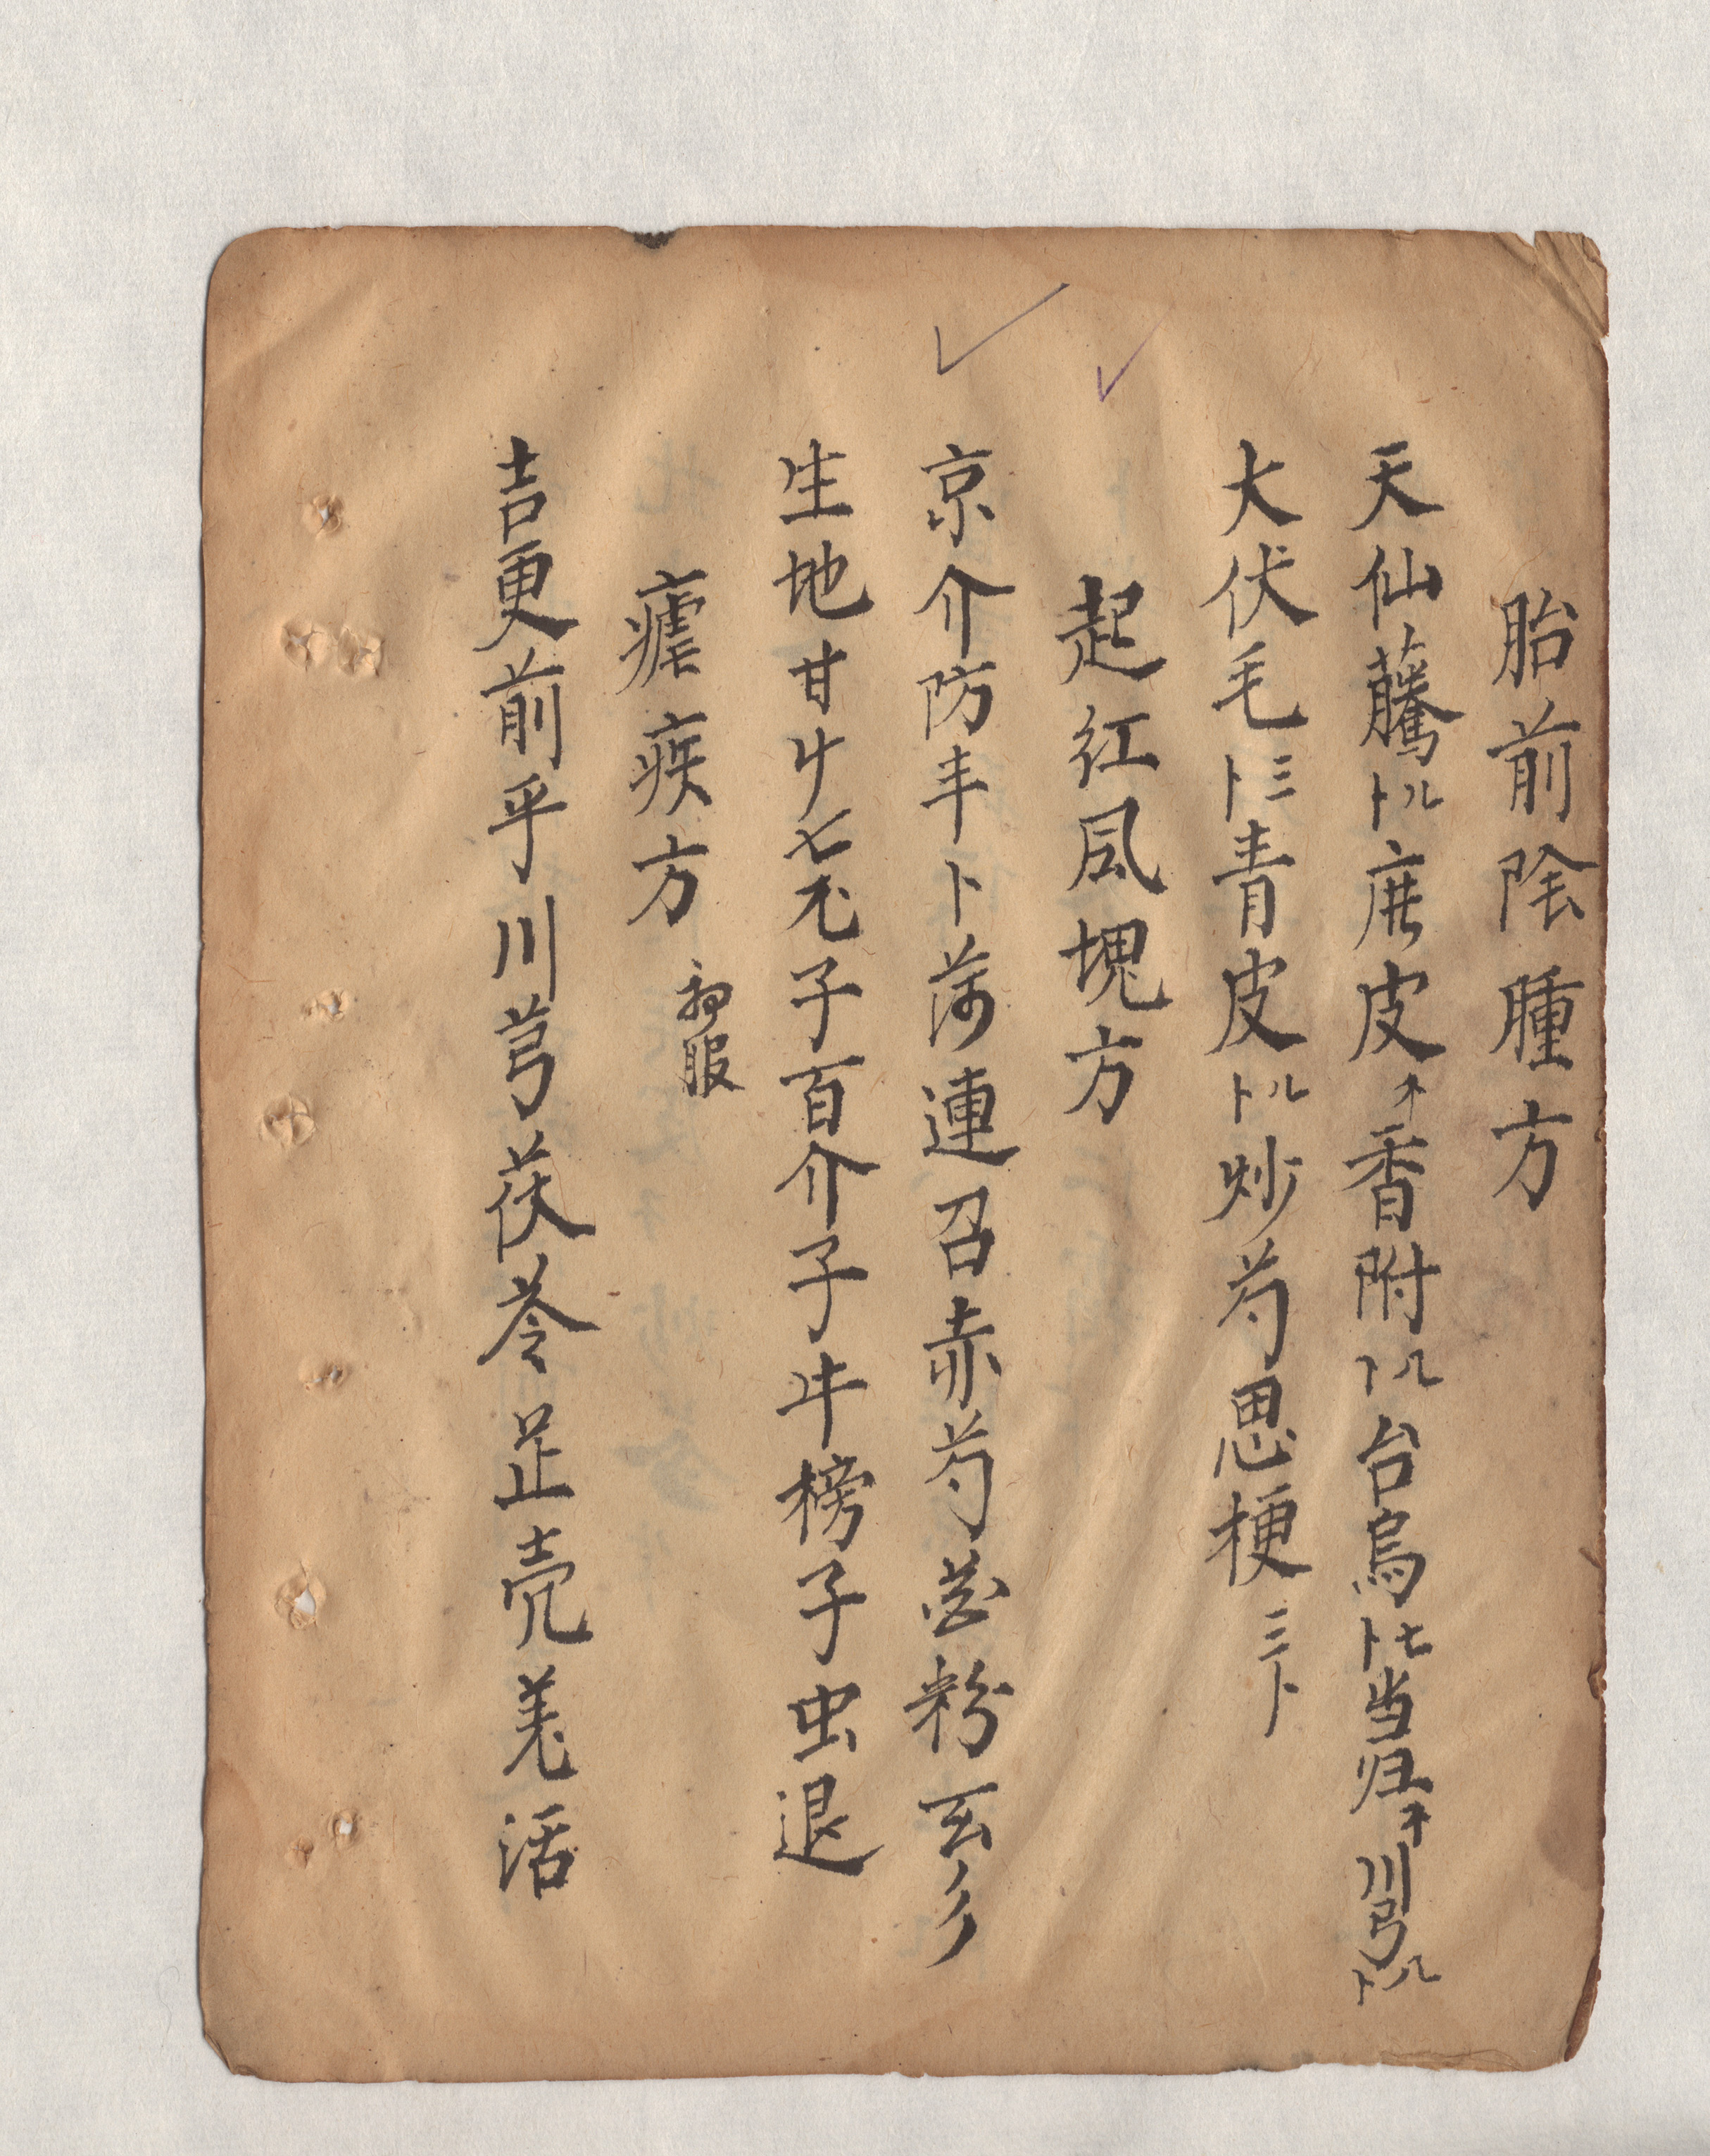 胎前陰腫方
天仙藤卜八皮香附卜八台烏卜七当归川芎卜八
大伏毛卜三青皮卜八炒芍思梗三卜
起红风塊方
京介防丰卜荷連召赤芍花粉玄彡
生地甘廾子百介子牛榜子虫退
瘧疾方 初服
吉更前乎川芎茯苓芷壳羌活